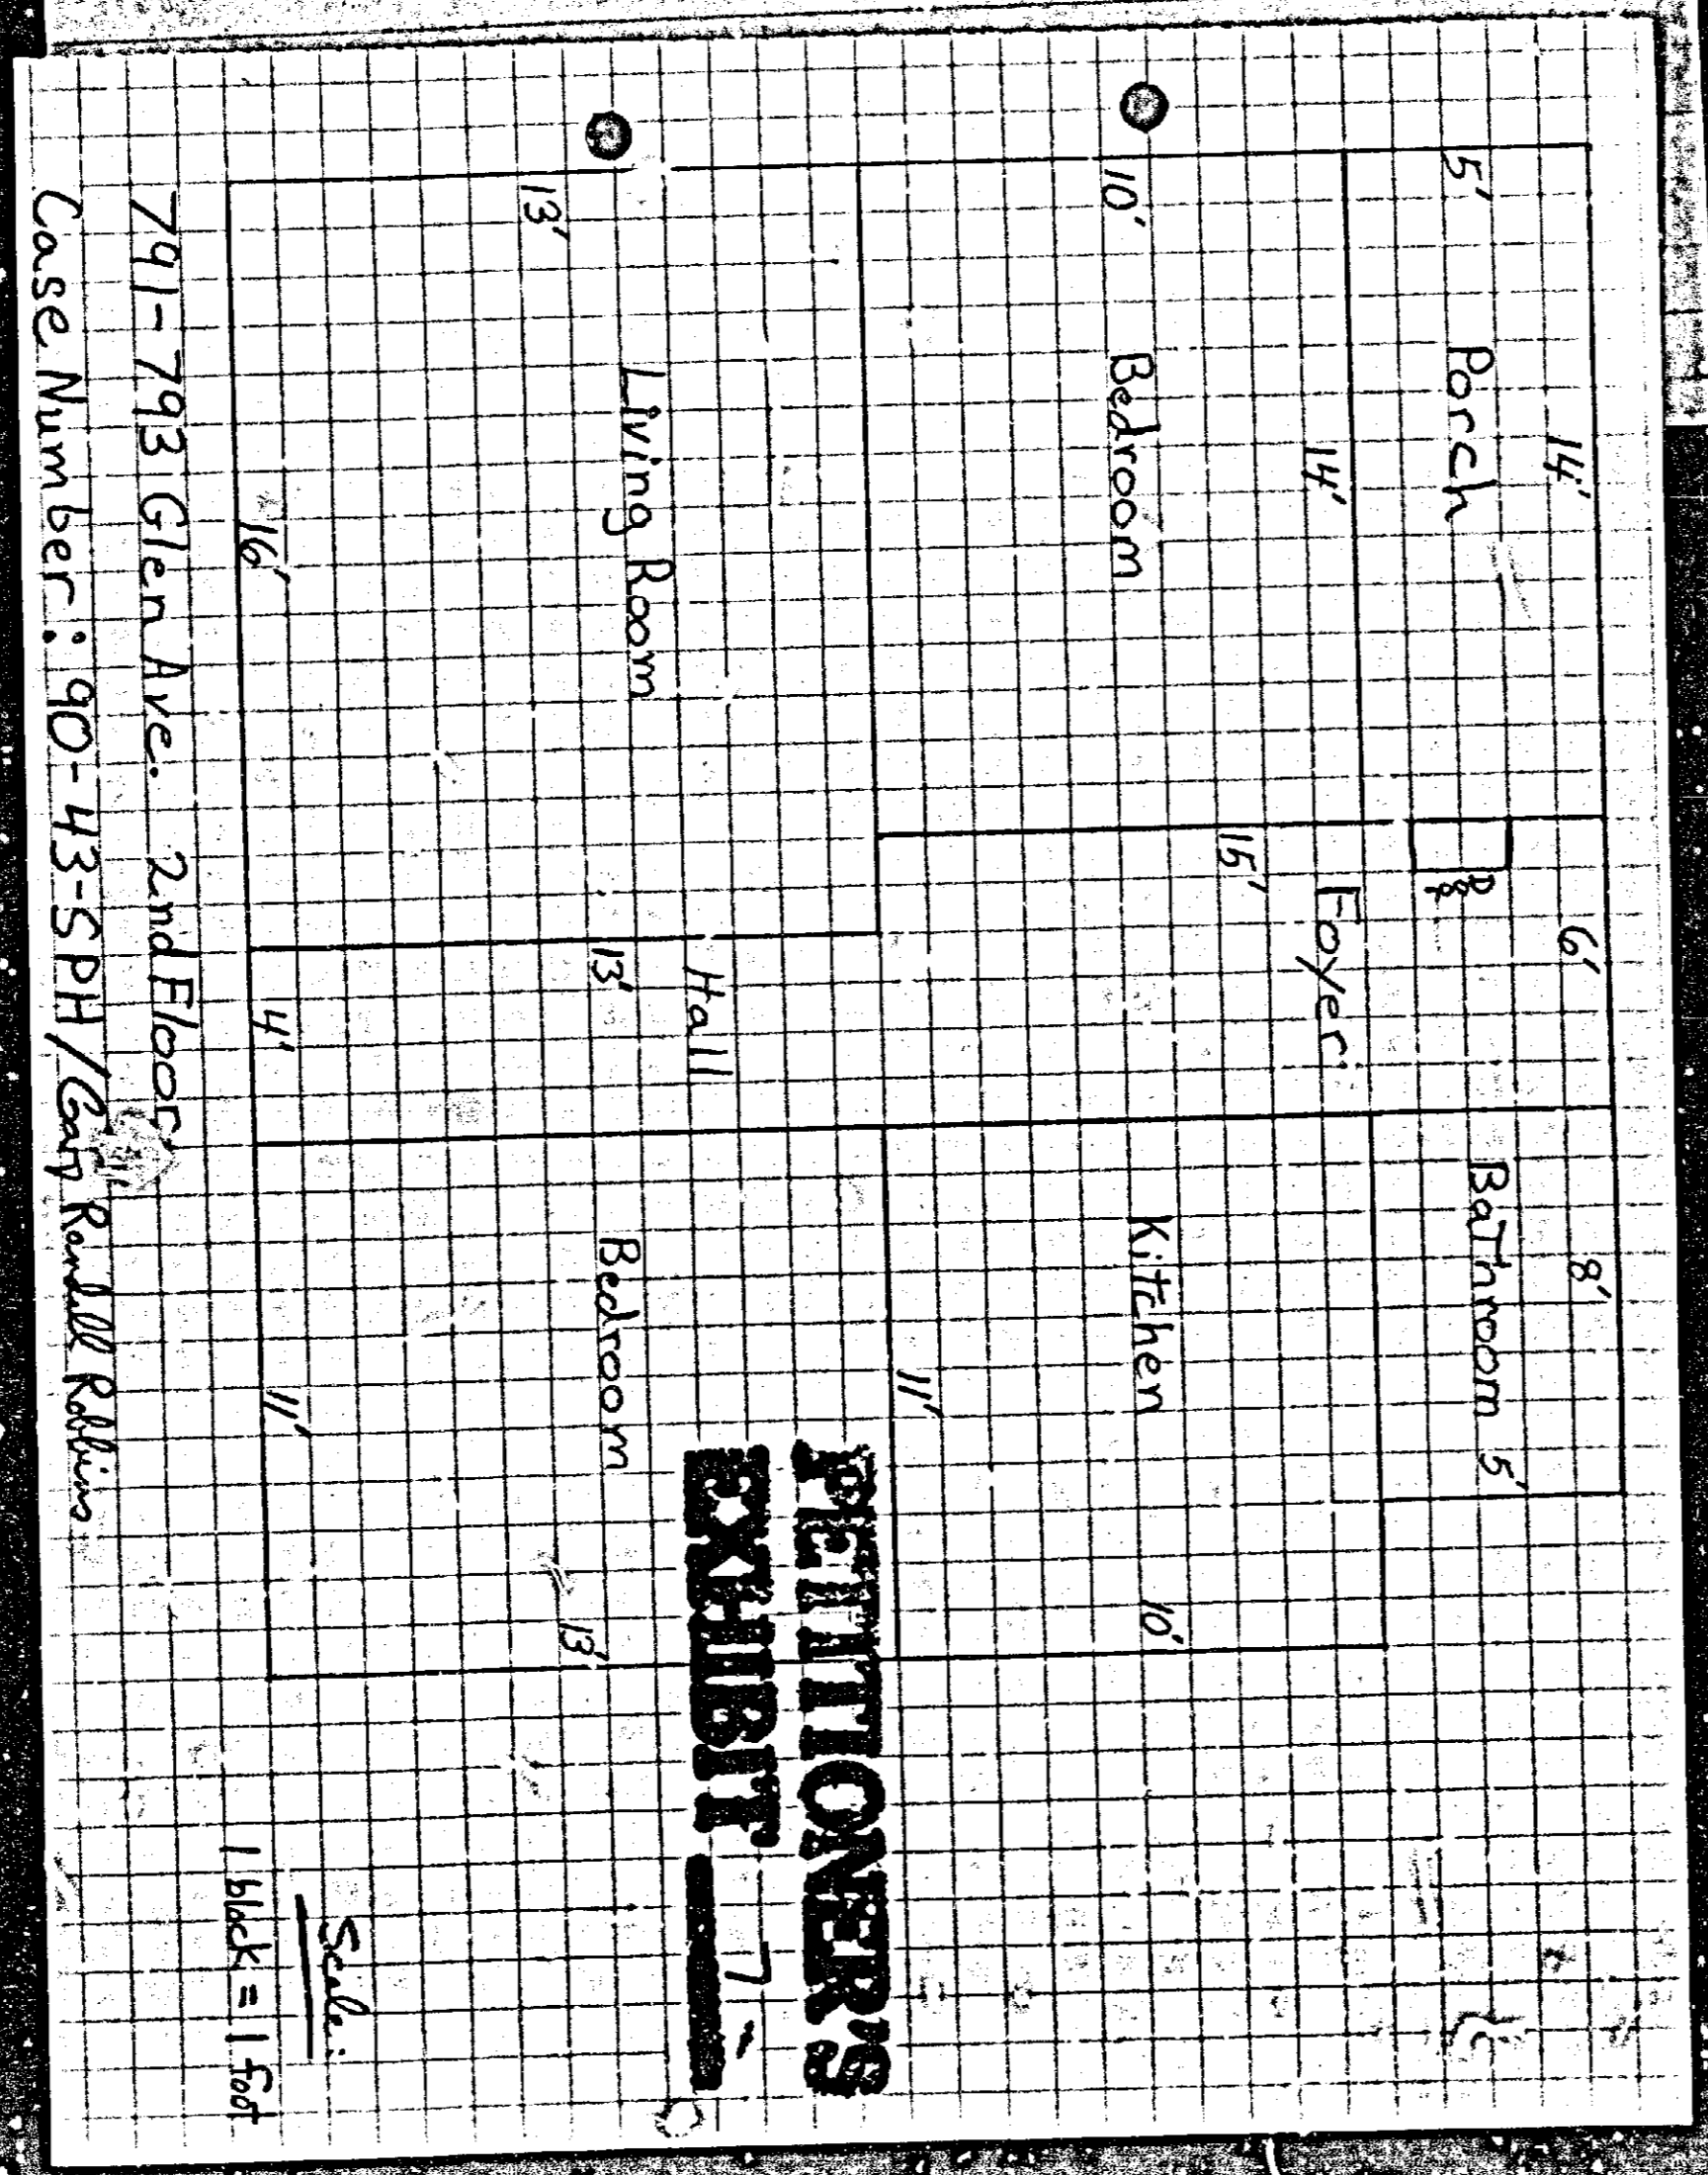 14'
6'
8'
5'
Porch
Bathroom
5'
14'
Foyer
10'
Bedroom
15'
Kitchen
10'
11'
PETITIONER'S
EXHIBIT 7
13'
Living Room
Hall
13'
Bedroom
13'
16'
4'
11'
Scale:
1 block = 1 foot
791-793 Glen Ave. 2nd Floor
Case Number: 90-43-SPH/Gary Randall Robins